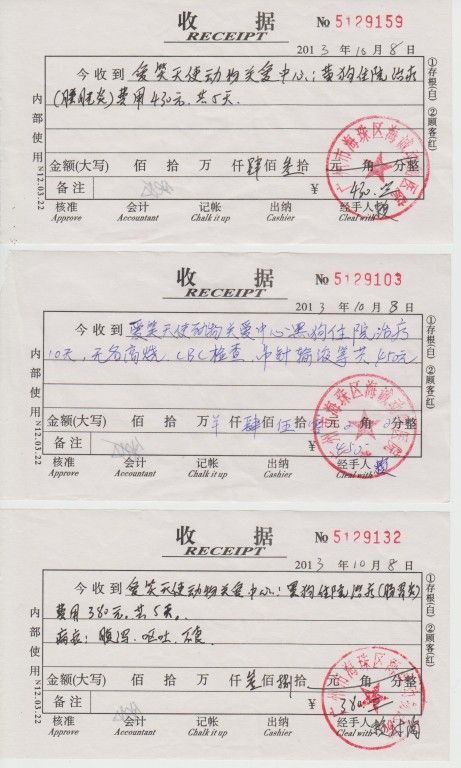 收 据
RECEIPT
№ 5129159
2013 年 10 月 8 日
今收到 爱笑天使动物关爱中心：黄狗住院治疗
(膀胱炎)费用430元.共5天.
金额(大写) 佰 拾 万 仟 肆 佰 叁 拾 元 角 分整
备注
¥ 430.
核准 会计 记帐 出纳 经手人
Approve Accountant Chalk it up Cashier Cleal with
内部使用 N12.03.22
①存根(白) ②顾客(红)
收 据
RECEIPT
№ 5129103
2013 年 10 月 8 日
今收到 爱笑天使动物关爱中心:黑狗住院治疗
10天,无名高烧. CBC检查, 吊针输液等共450元
金额(大写) 佰 拾 万 仟 肆 佰 伍 拾 元 角 分整
备注
¥ 450
核准 会计 记帐 出纳 经手人
Approve Accountant Chalk it up Cashier Cleal with
内部使用 N12.03.22
①存根(白) ②顾客(红)
收 据
RECEIPT
№ 5129132
2013 年 10 月 8 日
今收到 爱笑天使动物关爱中心：黑狗住院治疗(肠胃炎)
费用380元.共5天.
病症: 腹泻. 呕吐. 不食
金额(大写) 佰 拾 万 仟 叁 佰 捌 拾 元 角 分整
备注
¥ 380.
核准 会计 记帐 出纳 经手人
Approve Accountant Chalk it up Cashier Cleal with
内部使用 N12.03.22
①存根(白) ②顾客(红)